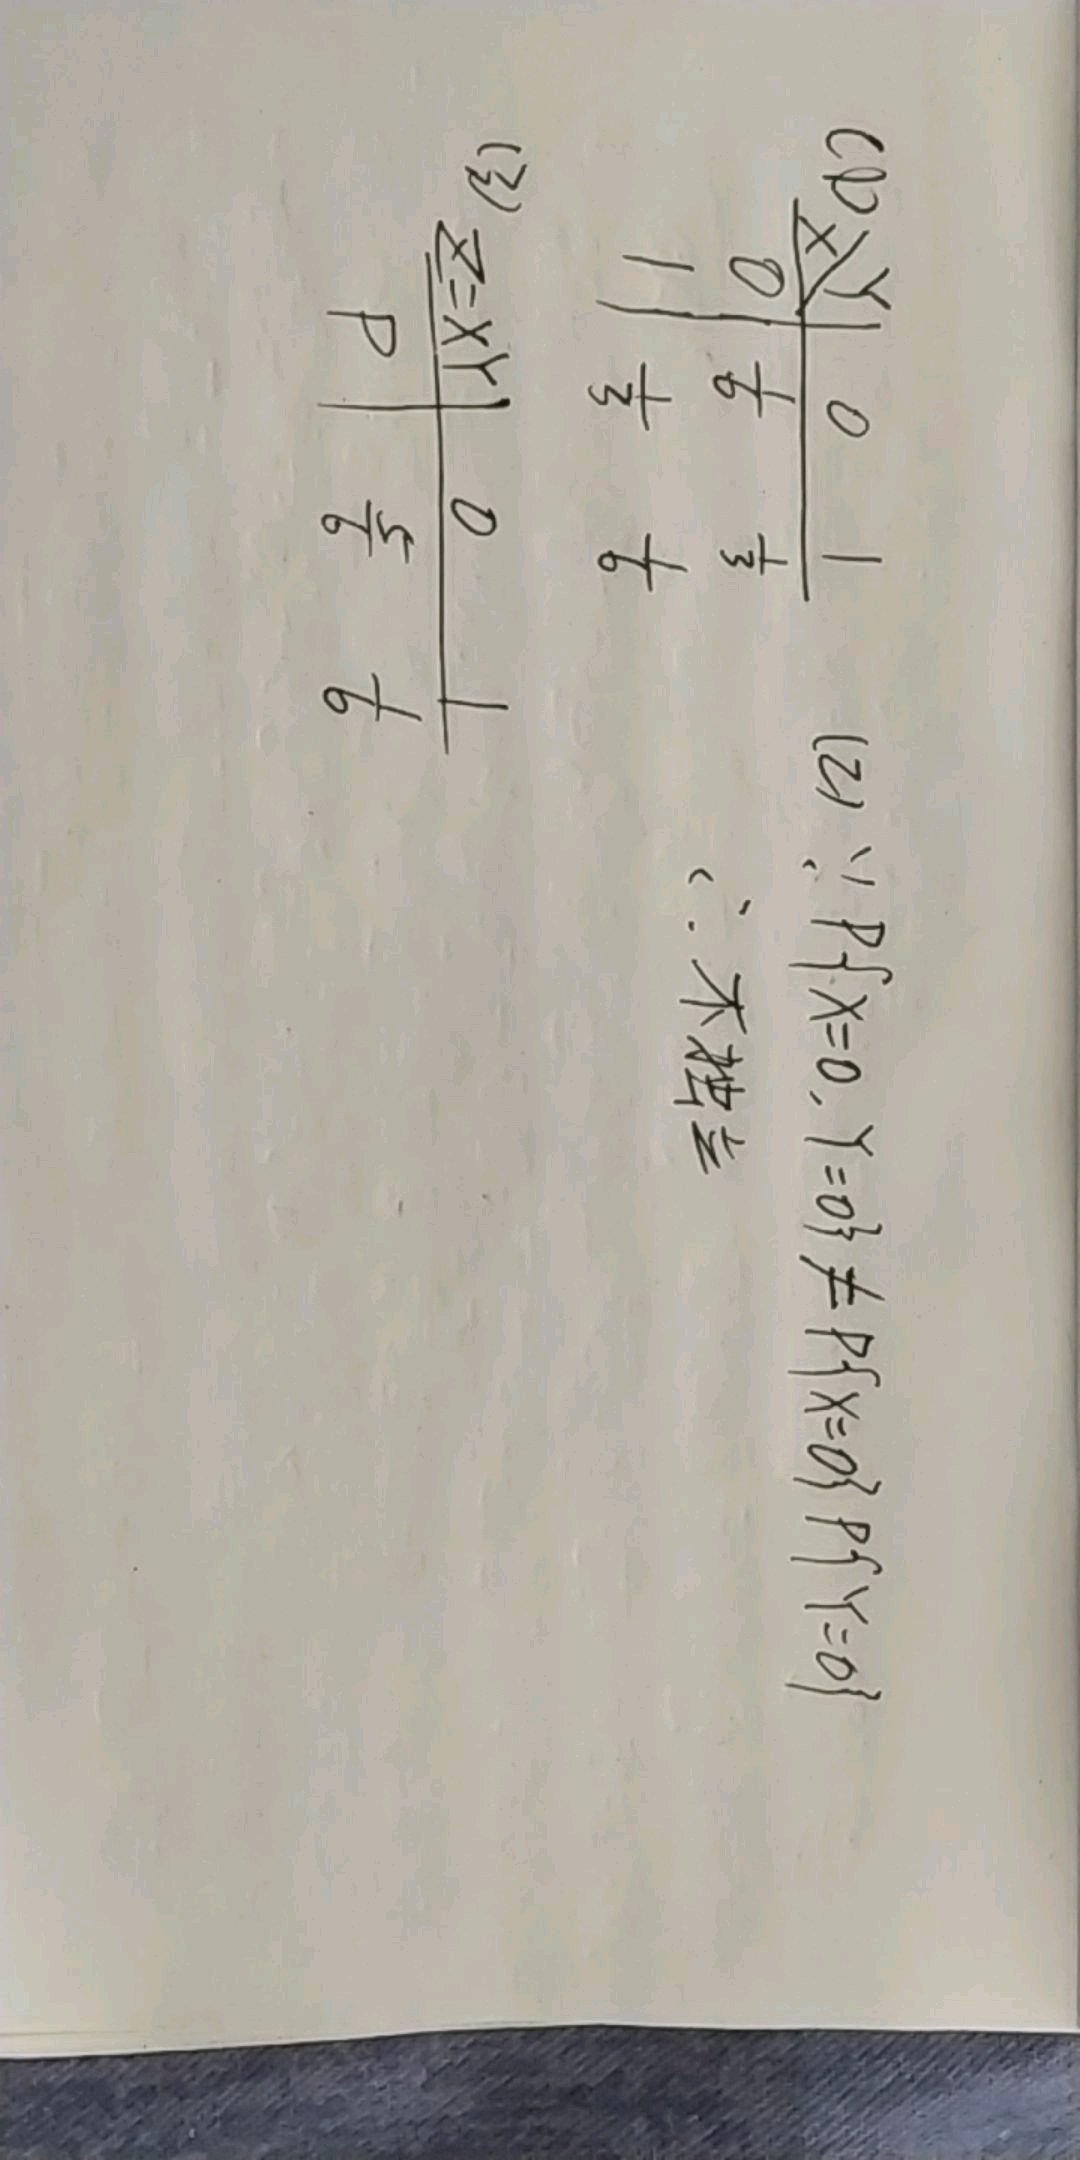 (1)
X\Y 0 1
0 1/6 1/3
1 1/3 1/6
(2) ∵ P{X=0, Y=0} ≠ P{X=0} P{Y=0}
∴ 不独立
(3)
Z=XY 0 1
P 5/6 1/6